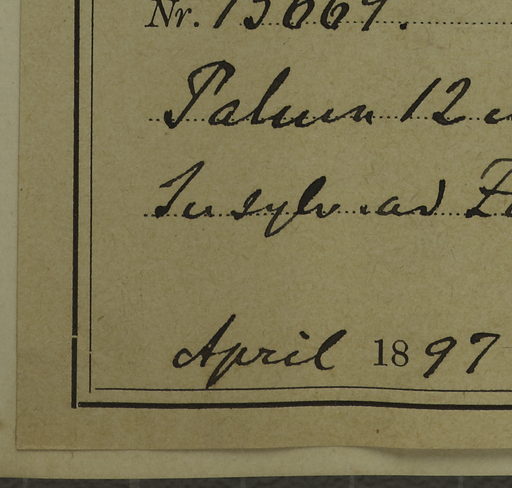 Nr. 15669.
Palma 12 m
In sylv. ad
April 1897